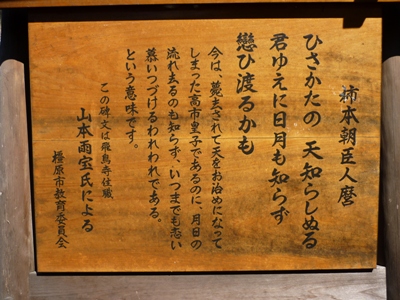 柿本朝臣人麿
ひさかたの 天知らしぬる
君ゆえに日月も知らず
戀ひ渡るかも
今は、薨去されて天をお治めになって
しまった高市皇子であるのに、月日の
流れ去るのも知らず、いつまでも恋い
慕いつづけるわれわれである。
という意味です。
この碑文は飛鳥寺住職
山本雨宝氏による
橿原市教育委員会